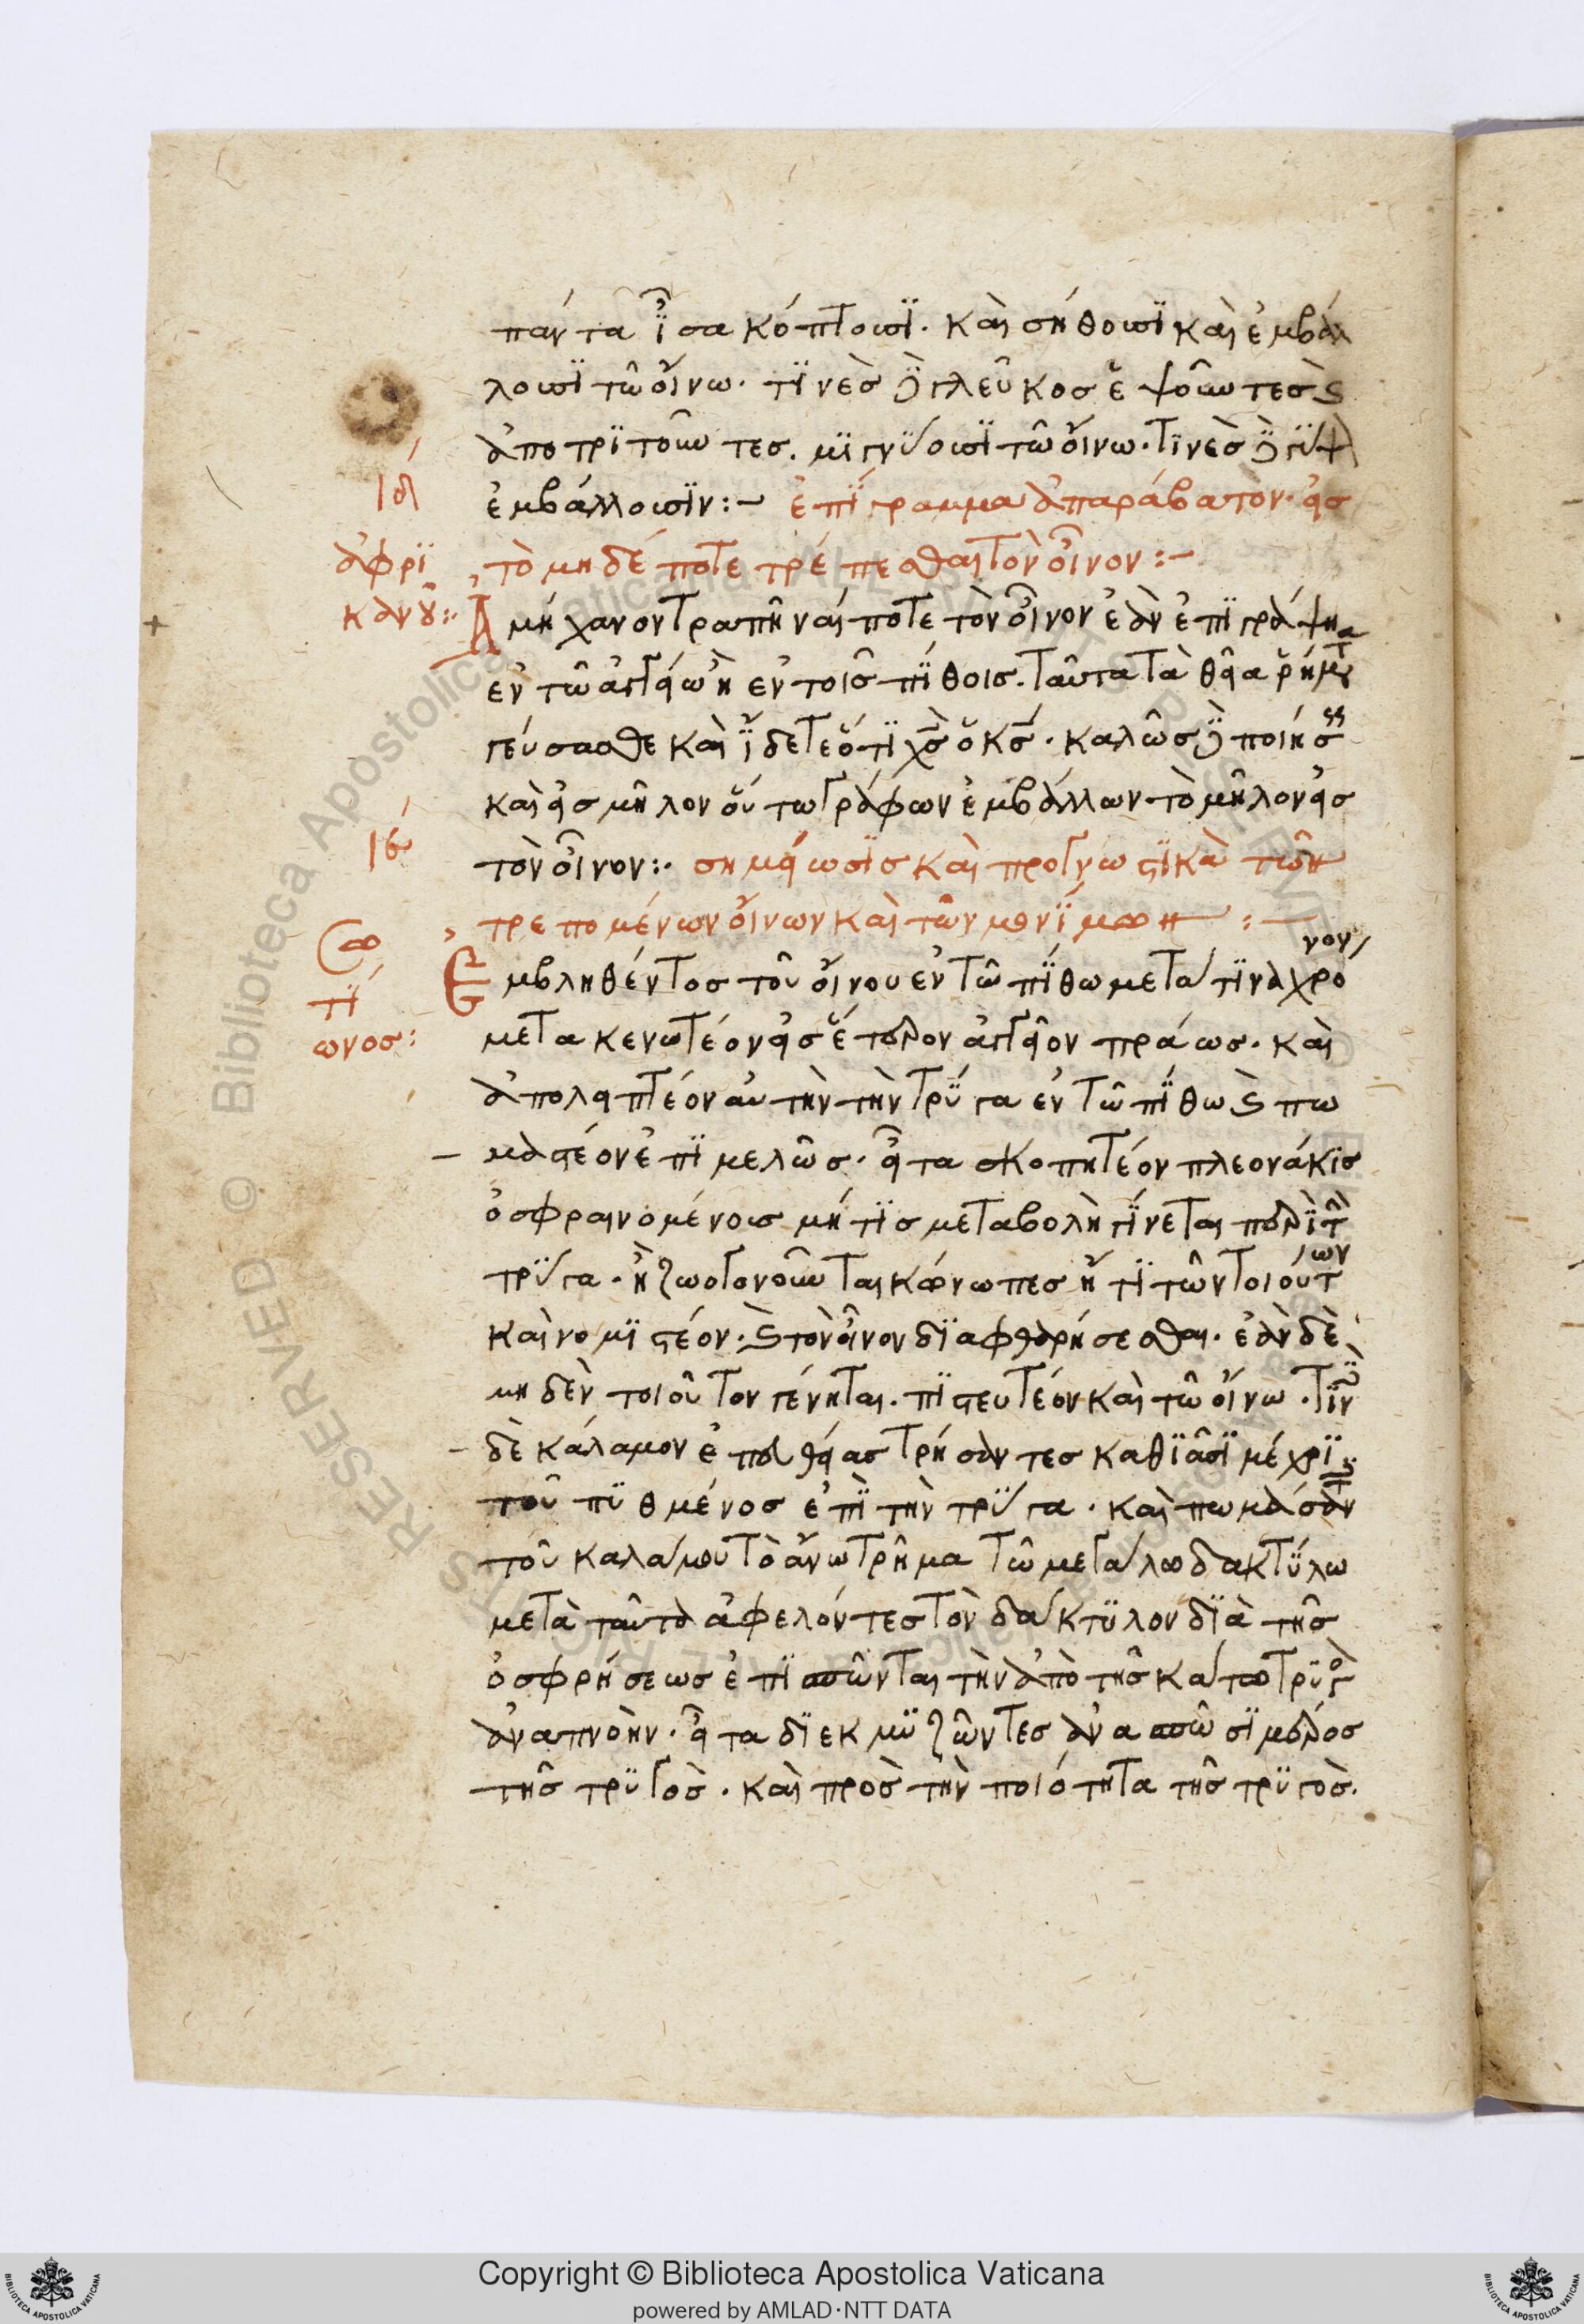 πάντα ἶσα κόπτουσϊ. καὶ σήθουσϊ καὶ ἐμβάλ
λουσϊ τῶ οἴνω. τϊνὲσ δὲ γλεῦκοσ ἑψοῦντεσ καὶ
ἀποτρϊτοῦντεσ. μϊγνΰουσϊ τῶ οἴνω. τϊνὲσ δὲ γΰψον
ἐμβάλλουσϊν:- ἐπΐγραμμα ἀπαράβατον. εἰσ
ιδ
τὸ μηδέποτε τρέπεσθαι τὸν οἶνον:-
ἀφρϊ
κανοῦ:
Ἀμήχανον τραπῆναι ποτε τὸν οἶνον ἐὰν ἐπϊγράψησ
ἐν τῶ ἀγγείω ἢ ἐν τοῖσ πΐθοισ. ταῦτα τὰ θεῖα ῥήματα
γεύσασθε καὶ ἴδετε ὅτϊ χσ ὁ κσ. καλῶσ δὲ ποιήσεισ
καὶ εἰσ μῆλον οὕτω γράφων ἐμβάλλων τὸ μῆλον εἰσ
τὸν οἶνον:. σημείωσϊσ καὶ προγνωστϊκὰ τῶν
ιε
τρεπομένων οἴνων καὶ τῶν μονΐμων:-
σω
τΐ
ωνοσ:
Ἐμβληθέντοσ τοῦ οἴνου ἐν τῶ πΐθω μετά τϊνα χρόνον
μετακενωτέον εἰσ ἕτερον ἀγγεῖον πράωσ. καὶ
ἀπολειπτέον αὐτὴν τὴν τρΰγα ἐν τῶ πΐθω καὶ πω
μαστέον ἐπϊμελῶσ. εἶτα σκοπητέον πλεονάκϊσ
ὀσφραινομένουσ μή τϊσ μεταβολὴ γΐνεται περὶ τὴν
τρΰγα. ἢ ζωογονοῦνται κώνωπεσ ἤ τϊ τῶν τοιούτων
καὶ νομϊστέον. καὶ τὸν οἶνον δϊαφθαρήσεσθαι. ἐὰν δὲ
μηδὲν τοιοῦτον γένηται. πϊστευτέον καὶ τῶ οἴνω. τϊνὲσ
δὲ κάλαμον ἐπ εὐθείασ τρήσαντεσ καθϊᾶσϊ μέχρϊ
τοῦ πϋθμένοσ ἐπϊ τὴν τρΰγα. καὶ πωμάσαντεσ
τοῦ καλάμου τὸ ἄνω τρῆμα τῶ μεγάλω δακτΰλω
μετὰ ταῦτα ἀφελόντεσ τὸν δάκτϋλον δϊὰ τῆσ
ὀσφρήσεωσ ἐπϊσπῶνται τὴν ἀπὸ τῆσ κάτω τρϋγὸσ
ἀναπνοὴν. εἶτα δϊεκμϋζῶντεσ ἀνασπῶσϊ μέροσ
τῆσ τρϋγὸσ. καὶ πρὸσ τὴν ποιότητα τῆσ τρϋγὸσ.
Copyright © Biblioteca Apostolica Vaticana
powered by AMLAD·NTT DATA